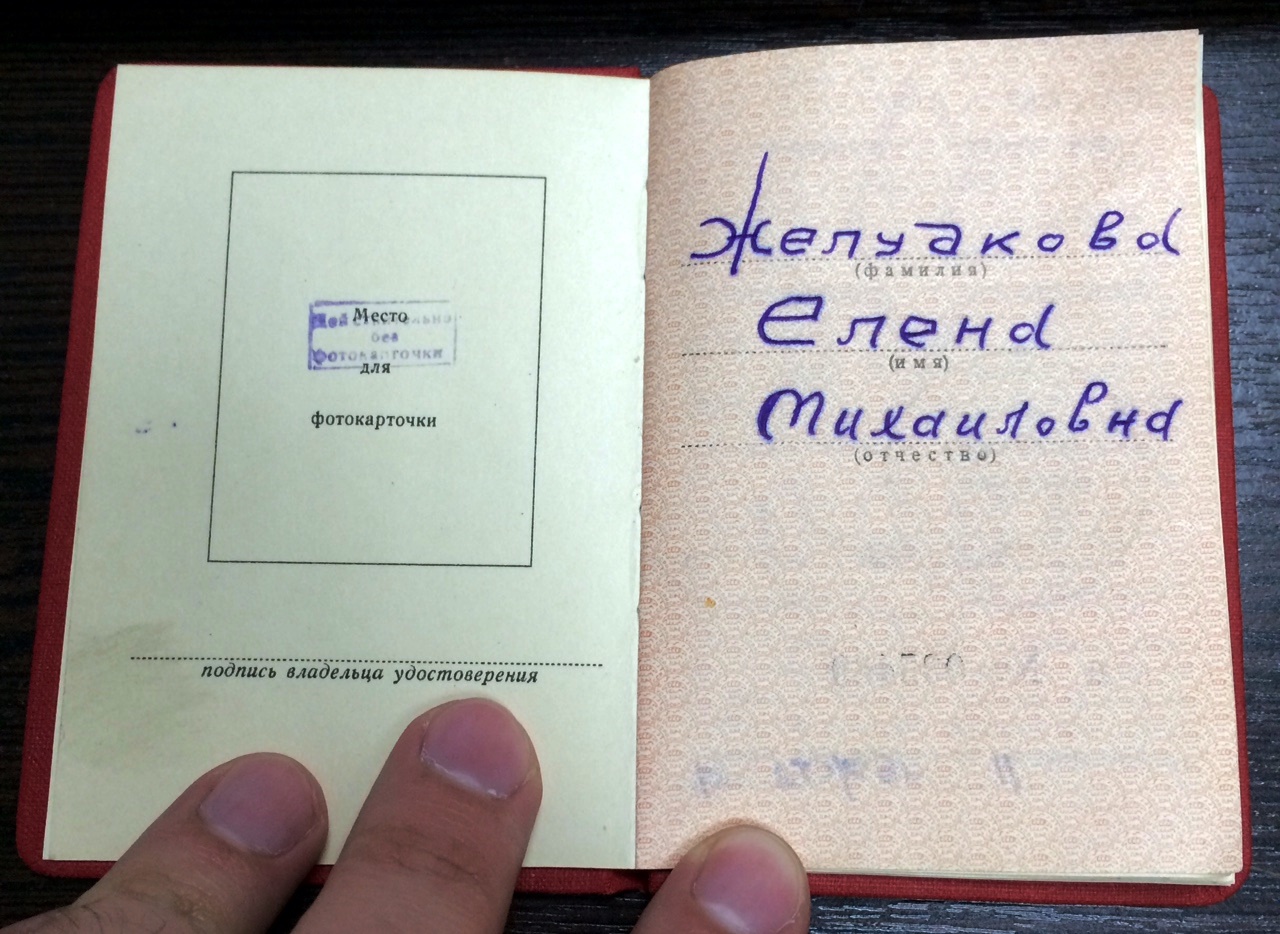 Место
Действительно
без
фотокарточки
для
фотокарточки
подпись владельца удостоверения
Желудкова
(фамилия)
Елена
(имя)
Михайловна
(отчество)